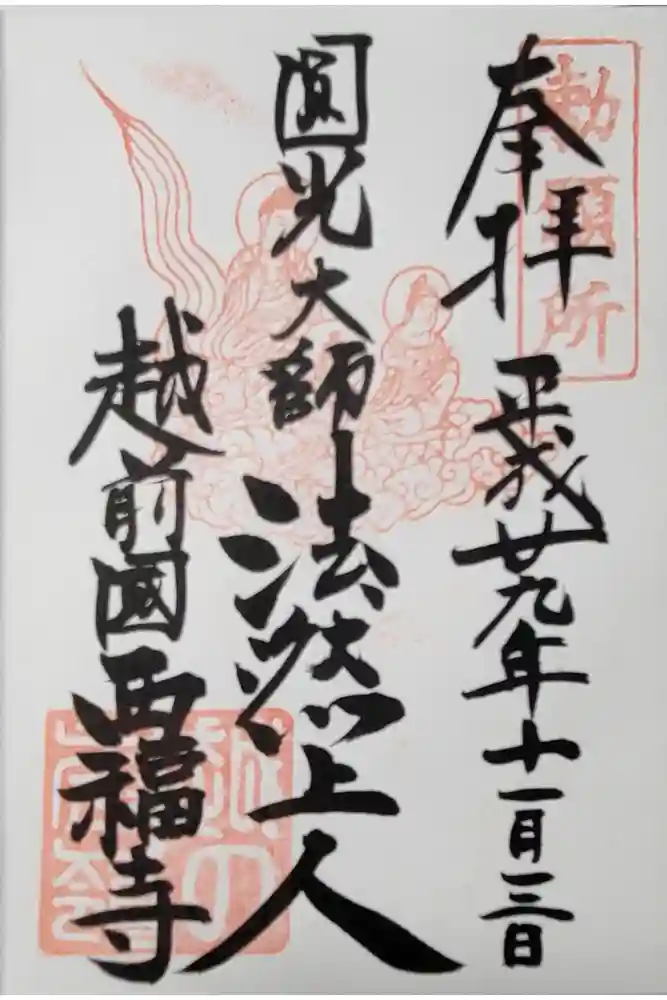 勅願所
奉拝
平成廿九年十一月三日
圓光大師
法然上人
越前國
西福寺